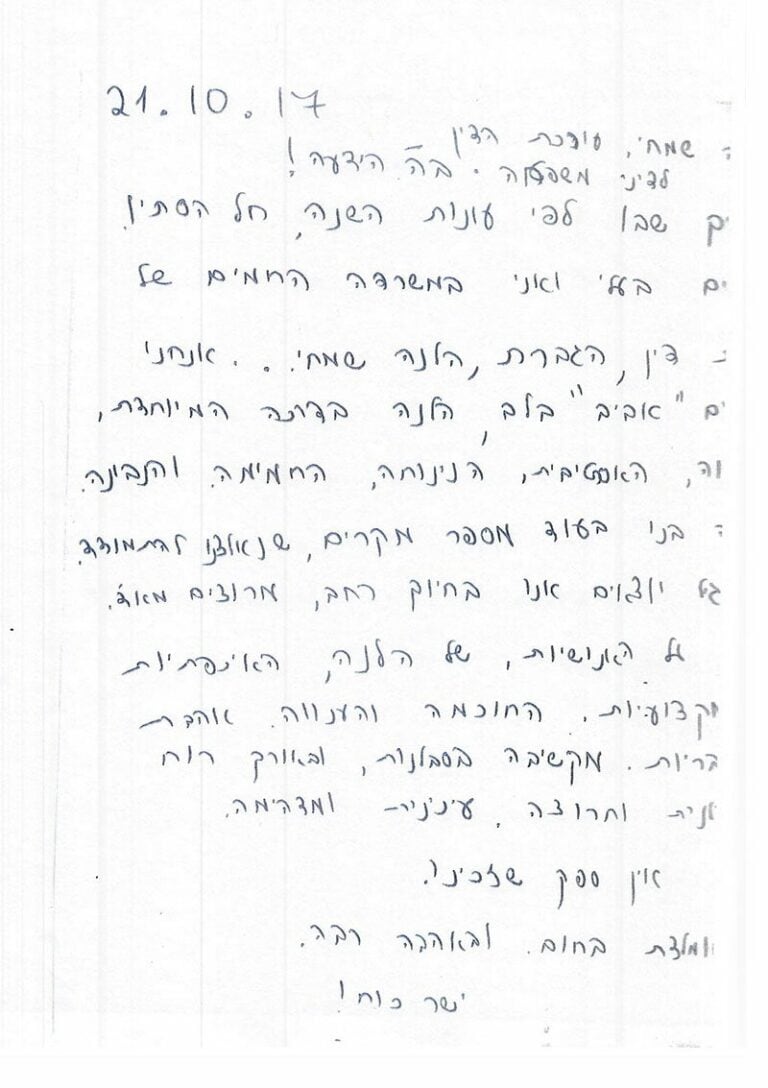 21.10.17
שמחי, עורכת הדין
לדיני משפחה. בה הידעה!
שבו לפי עונות השנה, חל הסתיו.
ים בעלי ואני במשרדה החמים של
דין, הגברת, הלנה שמחי... אנחנו
ים "אביב" בלב, הלנה בדרכה המיוחדת,
וה, האסרטיבית, הנינוחה, החמימה והנבונה.
בני בעוד מספר מקרים, שנאלצנו להתמודד.
יוצאים אנו בחיוך רחב, מרוצים מאוד.
על האנושיות, של הלנה, האיכפתיות
קצועיות. החוכמה והענווה. אוהבת
בריות. מקשיבה בסבלנות, ובאורך רוח
לנית וחרוצה. עיניינית ומדהימה.
אין ספק שזכינו.
ומלצת בחום. ובאהבה רבה.
ישר כוח!